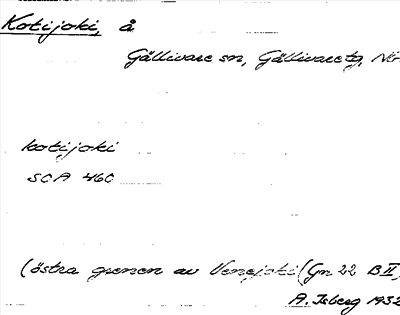 Kotijoki, å
Gällivare sn, Gällivare tg, Nb
kotijoki
SOA 460
(östra grenen av Venejoki (Gn 22 B II)
A. Isberg 1932